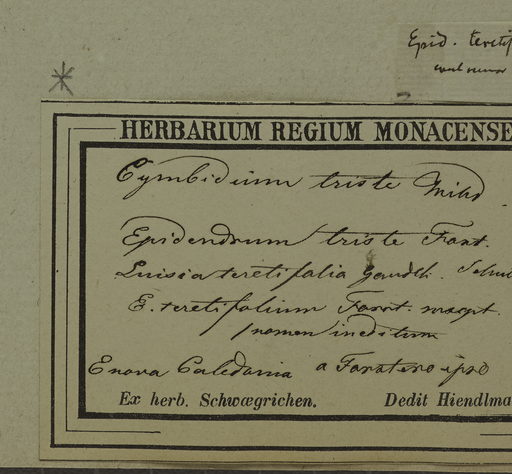 Epid. teretif
HERBARIUM REGIUM MONACENSE
Cymbidium triste Willd
Epidendrum triste Forst.
Luisia teretifolia Gaudch.
E. teretifolium Forst. mscpt.
(nomen ineditum
E nova Caledonia a Forstero ipso
Ex herb. Schwægrichen. Dedit Hiendlma